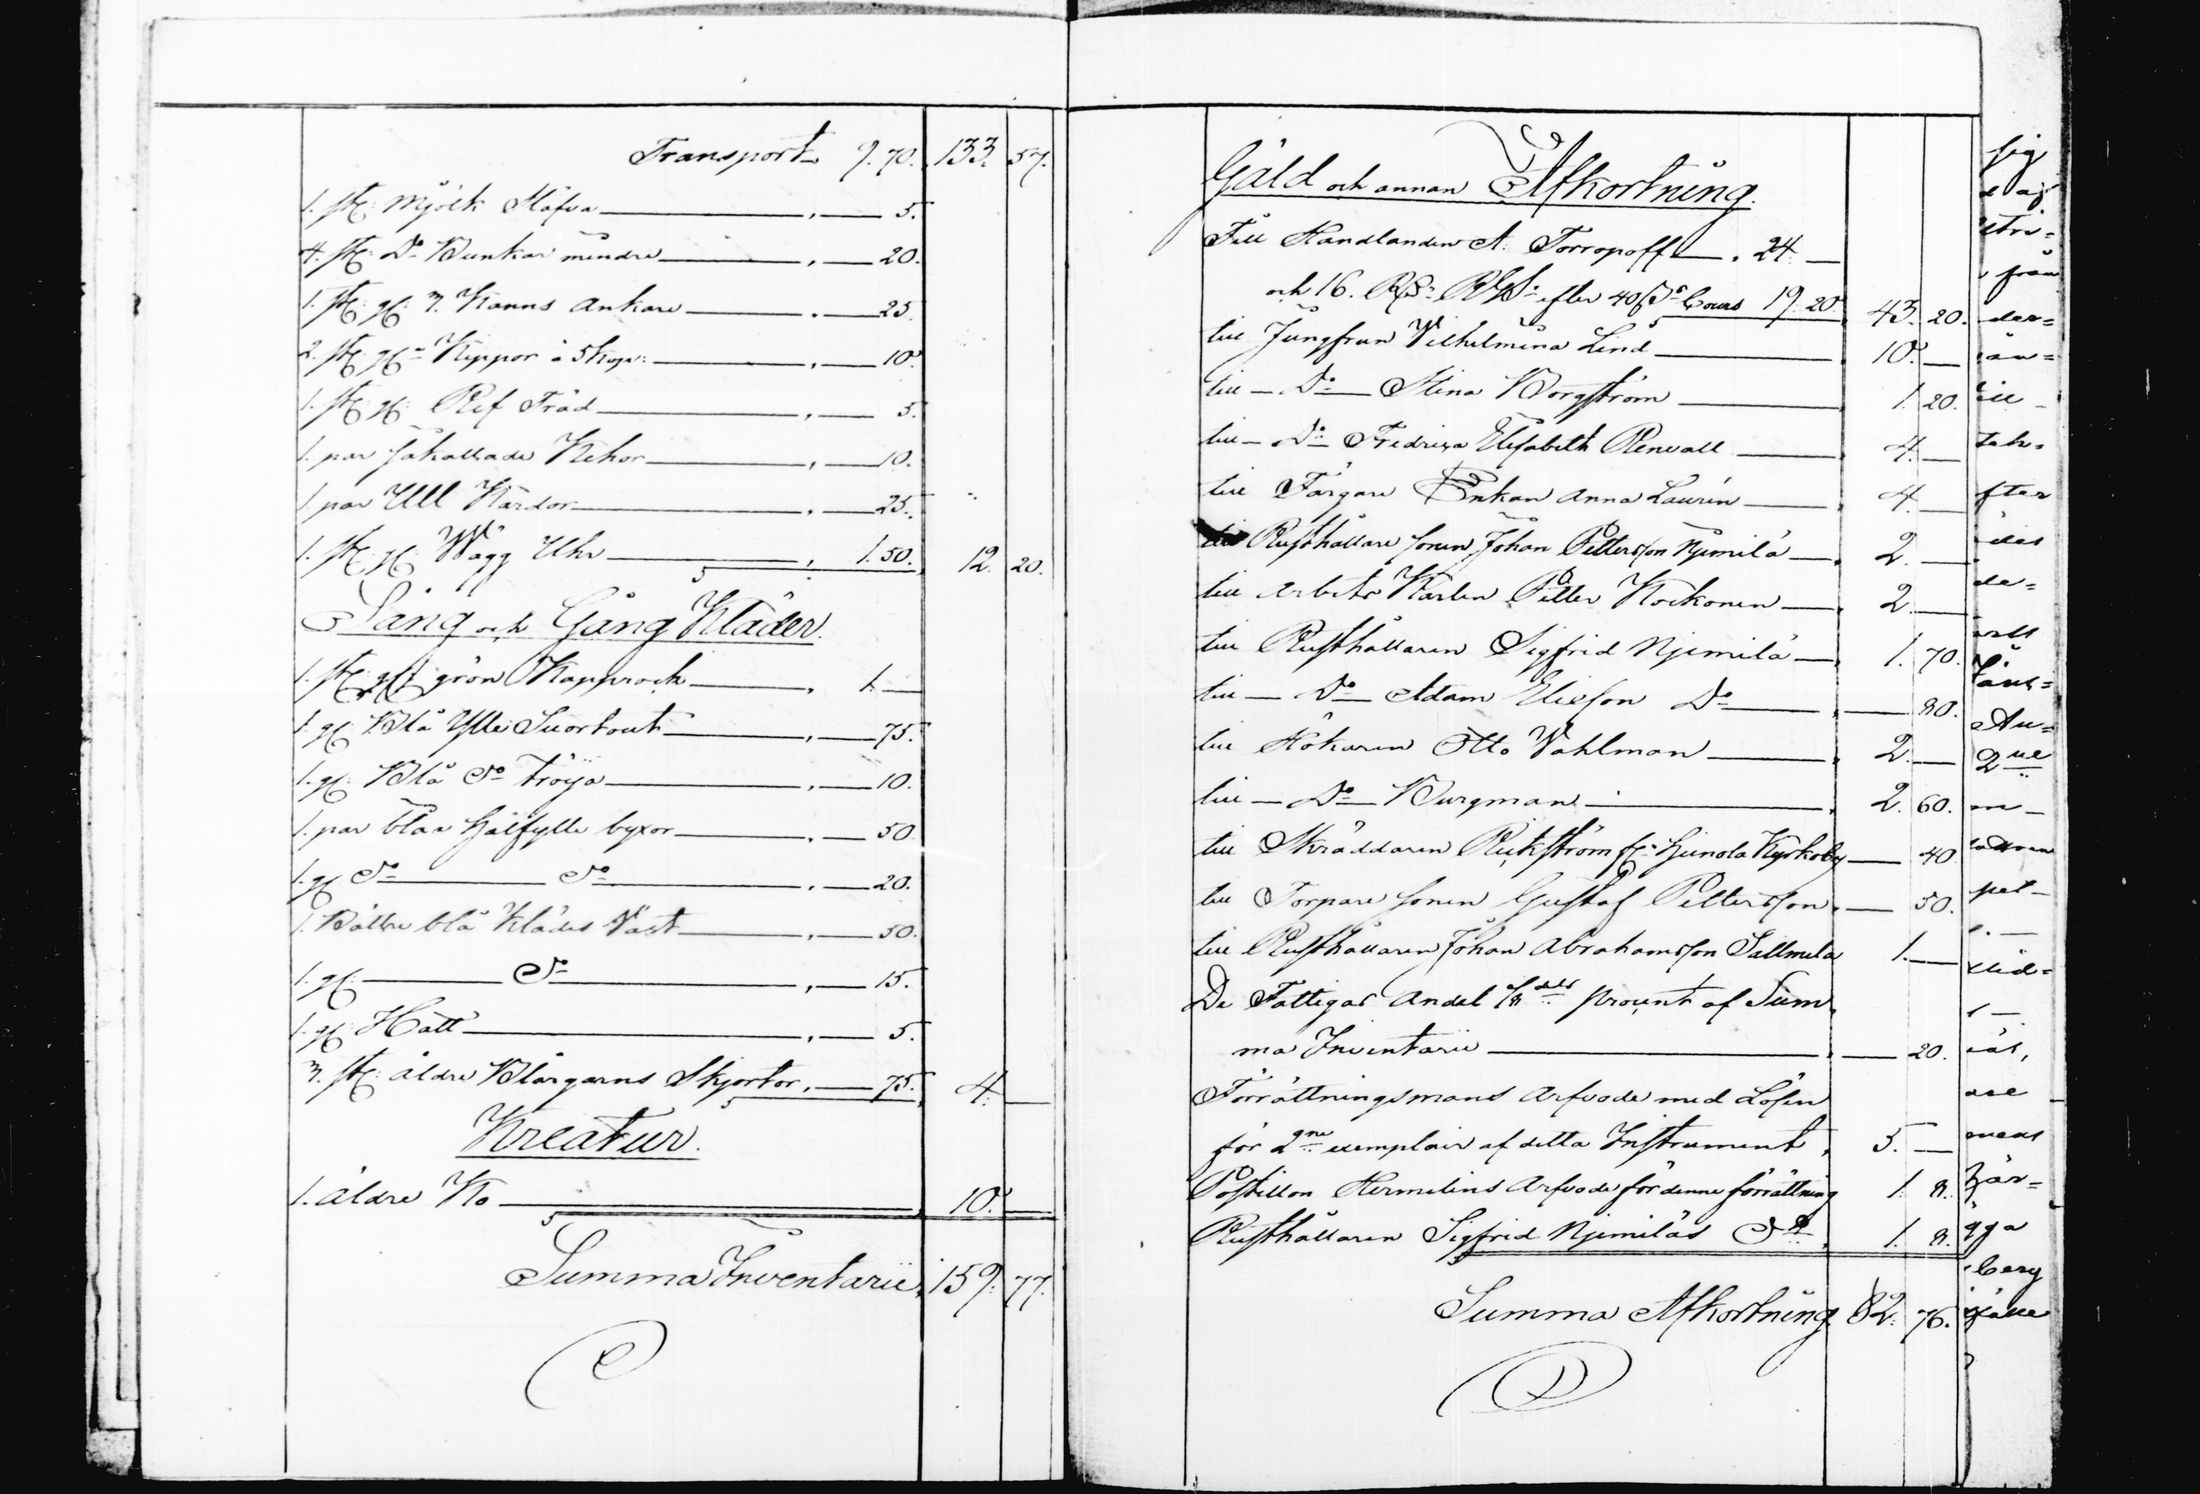 Transport 9. 70. 133. 57.
1. st: Mjölk Stäfva —— , — 5.
4. st: Do Bunkar mindre —— , — 20.
1. st: gl: 3. Kanns Ankare —— , — 25.
2. st: gla Kippor á 5 kop: —— , — 10.
1. st: gl: Ref Tråd —— , — 5.
1. par Kehor —— , — 10.
1. par Ull Kardor —— , — 25.
1. st: gl: Wägg Uhr —— , 1. 50. 12. 20.
Säng och Gång Kläder.
1. st: gl: grön Kapprock —— , 1. —
1. gl: Blå Ylle Suortout —— , — 75.
1. gl: Blå Do tröya —— , — 10.
1. par blåa hálfylle byxor —— , — 50.
1. gl Do —— Do —— , — 20.
1. Bättre blå Klädes Väst —— , — 50.
1. gl: —— Do —— , — 15.
1. gl: Hatt —— , — 5.
3. st: äldre Blårgarns Skjortor , — 75. 4. —
Kreatur.
1. äldre Ko —— 10. —
Summa Inventarii, 159. 77.
Gäld och annan Afkortning.
Till Handlanden A. Torropoff — , 24. —
och 16. RS: RGS: efter 40 So Cours 19. 20. 43. 20.
till Jungfrun Vilhelmina Lind —— , 10. —
till — Do — Stina Borgström —— , 1. 20.
till — Do — Fredrica Elisabeth Renvall —— , 4. —
till Färgare Enkan Anna Laurin —— , 4. —
till Rusthållare sonen Johan Petterson Njemilä — , 2. —
till Arbets Karlen Petter Kockonen — , 2. —
till Rusthållaren Sigfrid Njemilä — , 1. 70.
till — Do — Adam Elieson Do —— , — 80.
till Hökaren Otto Vahlman —— , 2. —
till — Do — Burgman —— , 2. 60.
till Skräddaren Rickström fr: Hinola Kyrkoby — 40
till Torpare sonen Gustaf Petterson , — 50.
till Rusthållaren Johan Abrahamsson Sallmela 1. —
De Fattigas Andel 1/8 dels procent af Sum¬
ma Inventarii —— , — 20.
Förrättningsmans Arfvode med Lösen
för 2ne exemplair af detta Instrument , 5. —
Postillon Hermelins Arfvode för denne förrättning 1. 8.
Rusthållaren Sigfrid Njemiläs Do , 1. 8.
Summa Afkortning 82. 76.
sig
från
der=
fter
de=
Au=
2ne
m —
pel —
mens
här=
gga
berg